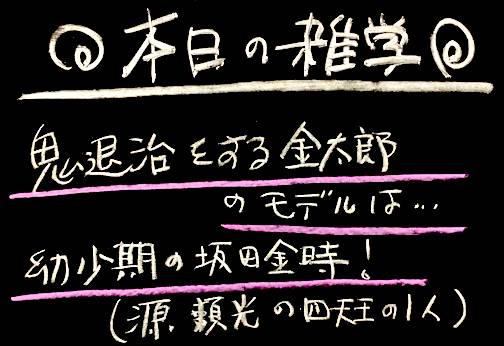 本日の雑学
鬼退治をする金太郎
のモデルは…
幼少期の坂田金時!
(源頼光の四天王の1人)